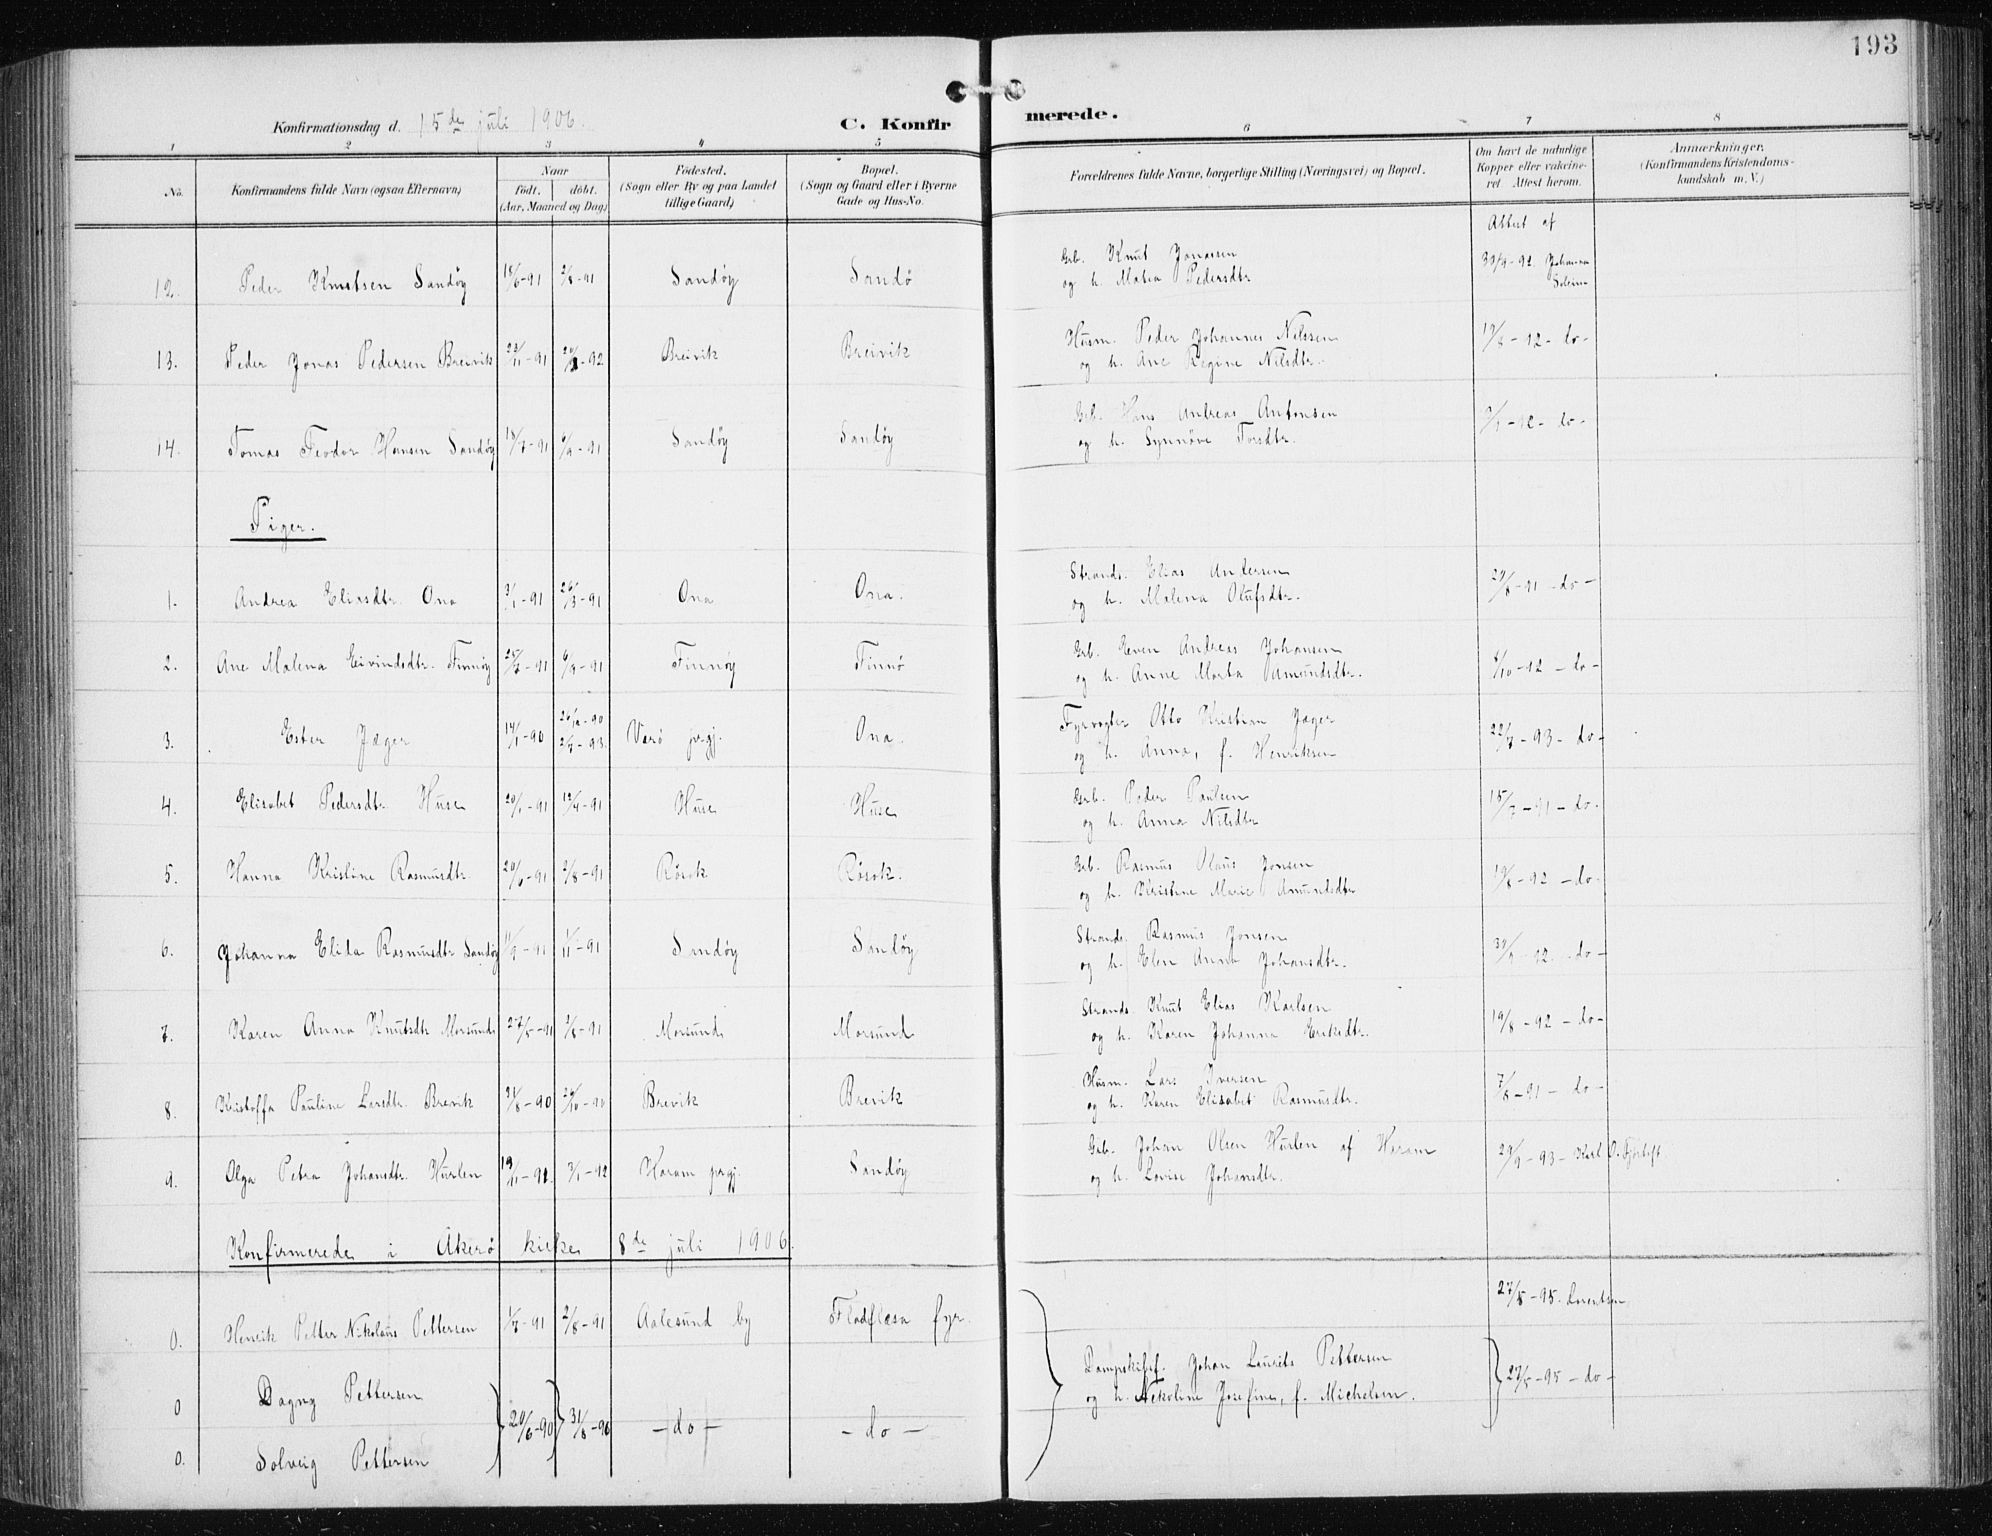 193
Konfirmationsdag d. 15de juli 1906.
C. Konfirmerede.
1 2 3 4 5 6 7 8
No. Konfirmandens fulde Navn (ogsaa Efternavn) Naar født. døbt. (Aar, Maaned og Dag) Fødested. (Sogn eller By og paa Landet tillige Gaard) Bopæl. (Sogn og Gaard eller i Byerne Gade og Hus-No. Forældrenes fulde Navne, borgerlige Stilling (Næringsvei) og Bopæl. Om havt de naturlige Kopper eller vakcineret Attest herom. Anmærkninger. (Konfirmandens Kristendomskundskab m. V.)
Attest af
12. Peder Knutsen Sandøy 18/6-91 2/8-91 Sandøy Sandø Grb. Knut Jonassen 30/9-92 Johannes
og h. Malia Pedersdtr
13. Peder Jonas Pedersen Breivik 23/11-91 Breivik Breivik Husm. Peder Johannes Nilssen 19/8-92-do-
og h. Ane Regine Nilsdtr.
14. Tomas Teodor Hansen Sandøy 18/7-91 6/9-91 Sandøy Sandøy Grb. Hans Andreas Antonsen -92-do-
og h. Synnöve Torsdtr.
Piger.
1. Andrea Eliasdtr. Ona 3/1-91 26/3-91 Ona Ona. Strands. Elias Andersen 29/8-91-do-
og h. Malena Olufsdtr.
2. Ane Malena Eivindsdtr. Finnöy 6/9-91 Finnöy Finnö Grb. Even Andreas Johansen 4/10-92-do-
og h. Anne Marta Amundsdtr.
3. Ester Jæger 14/1-90 Værö prgj. Ona. Fyrvogter Otto Kristian Jæger 22/7-93-do-
og h. Anna, f. Henriksen
4. Elisabet Pedersdtr. Huse 20/1-91 12/4-91 Huse Huse Grb. Peder Paulsen 15/7-91-do-
og h. Anna Nilsdtr
5. Hanna Kristine Rasmusdtr. 20/6-91 2/8-91 Rösok Rösok. Grb. Rasmus Olaus Jonsen 19/8-92-do-
og h. Kristine Marie Amundsdtr
6. Johanna Elida Rasmusdtr Sandøy 11/9-91 1/11-91 Sandøy Sandøy Strands. Rasmus Jonsen 30/9-92-do-
og h. Elen Anna Johansdtr.
7. Karen Anna Knutsdtr Morsund 27/5-91 2/8-91 Morsund Morsund Strands. Knut Elias Karlsen 19/8-92-do-
og h. Karen Johanna Eriksdtr.
8. Kristoffa Pauline Larsdtr. Brevik 31/8-90 26/10-90 Brevik Brevik Husm. Lars Iversen 7/8-91-do-
og h. Karen Elisabet Rasmusdtr.
9. Olga Petra Johansdtr. Hurlen 19/11-91 3/1-92 Haram prgj. Sandøy Grb. Johan Olsen Hurlen af Haram 29/9-93-Karl O. Fjörtoft
og h. Lovise Johansdtr.
Konfirmerede i Akerö kirke 8de juli 1906.
0. Henrik Petter Nikolaus Pettersen 1/7-91 2/8-91 Aalesund by Flatflesa fyr. 27/5-95-Lorentsen
0 Dagny Pettersen Dampskibsf. Johan Laurits Pettersen
og h. Nekoline Josefine, f. Michelsen. 27/5-95-do-
0. Solveig Pettersen 20/6-90 31/8-90 -do- -do-